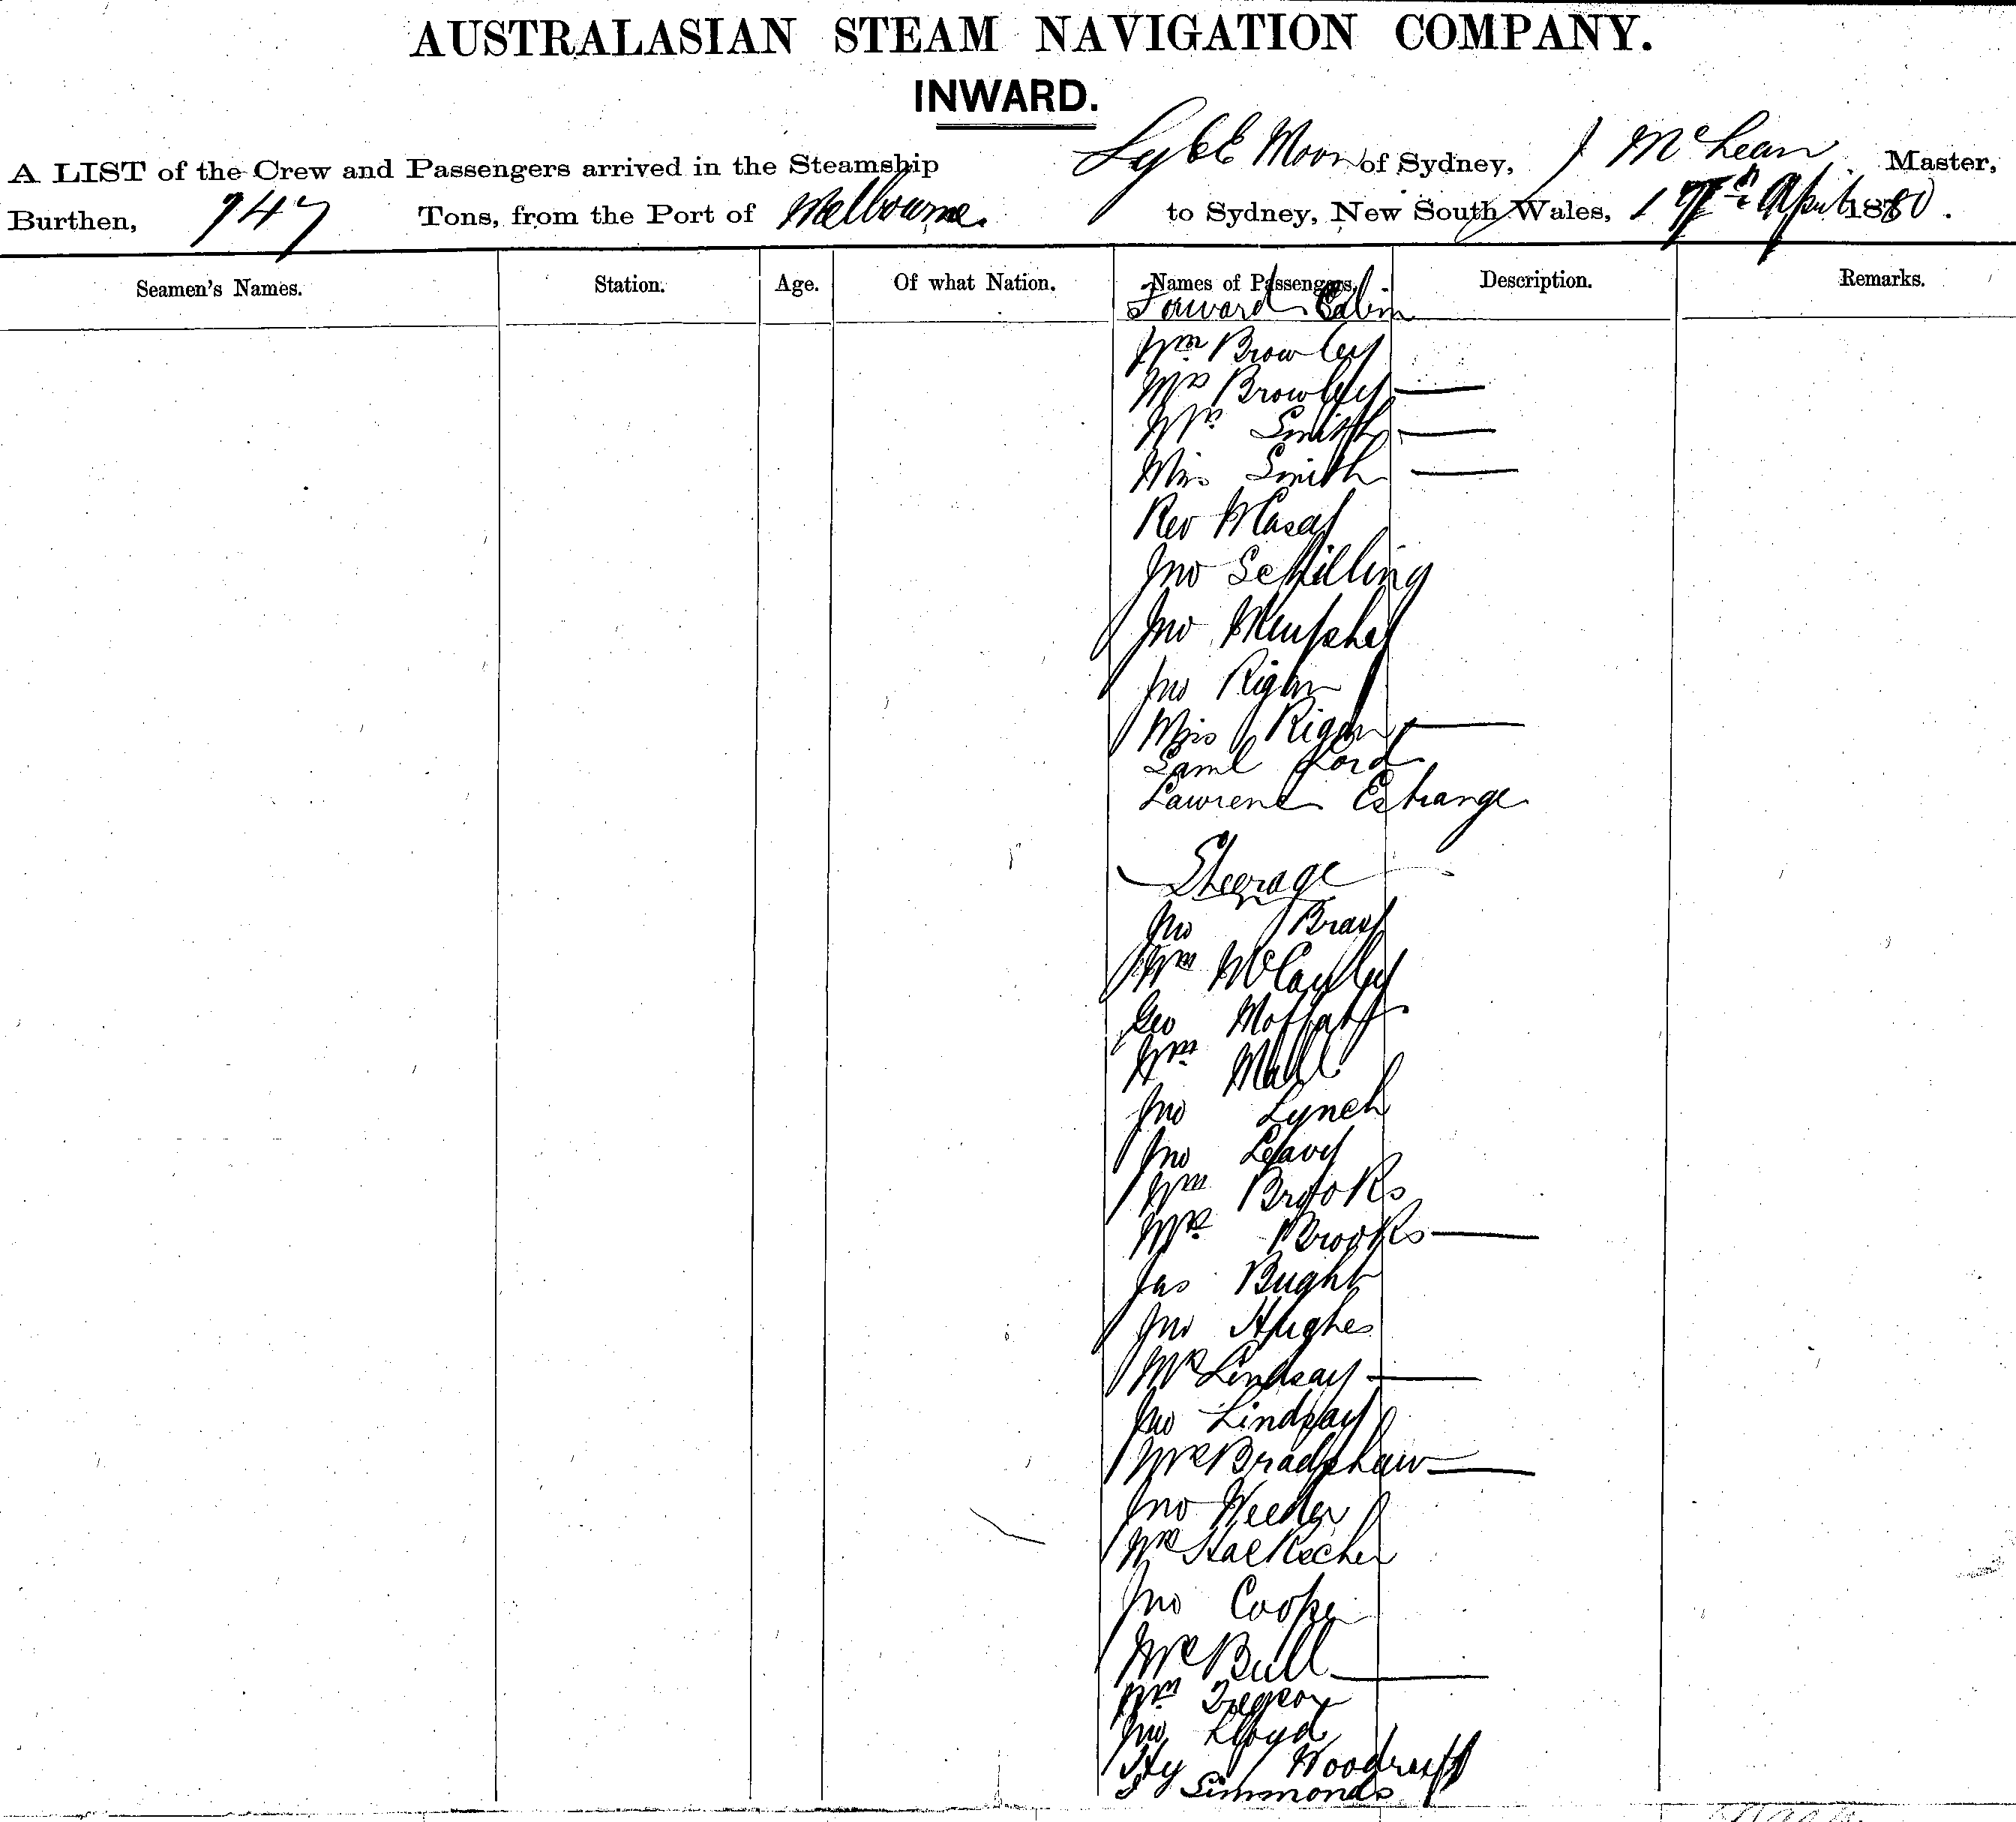 AUSTRALASIAN STEAM NAVIGATION COMPANY.
INWARD.
A LIST of the Crew and Passengers arrived in the Steamship Ly EE Moon of Sydney, J McLean Master,
Burthen, 947 Tons, from the Port of Melbourne. to Sydney, New South Wales, 19th April 1880.
Seamen's Names. Station. Age. Of what Nation. Names of Passengers. Description. Remarks.
Forward Cabin
Wm Browley
Mrs Browley
Mrs Smith
Miss Smith
Rev
Jno Schilling
Jno
Jno Rigan
Miss Rigan
Saml Lord
Lawrence Estrange
Steerage
Jno Bray
Wm McCauley
Geo Moffatt
Wm Mall
Jno Lynch
Jno Leavy
Wm Brooks
Mrs Brooks
Jas Bught
Jno Hughes
Mrs Lindsay
Jno Lindsay
Mrs Bradshaw
Jno
Wm
Jno Cooper
Mrs Bull
Wm
Jno Lloyd
Hy Woodruff
J Simmonds